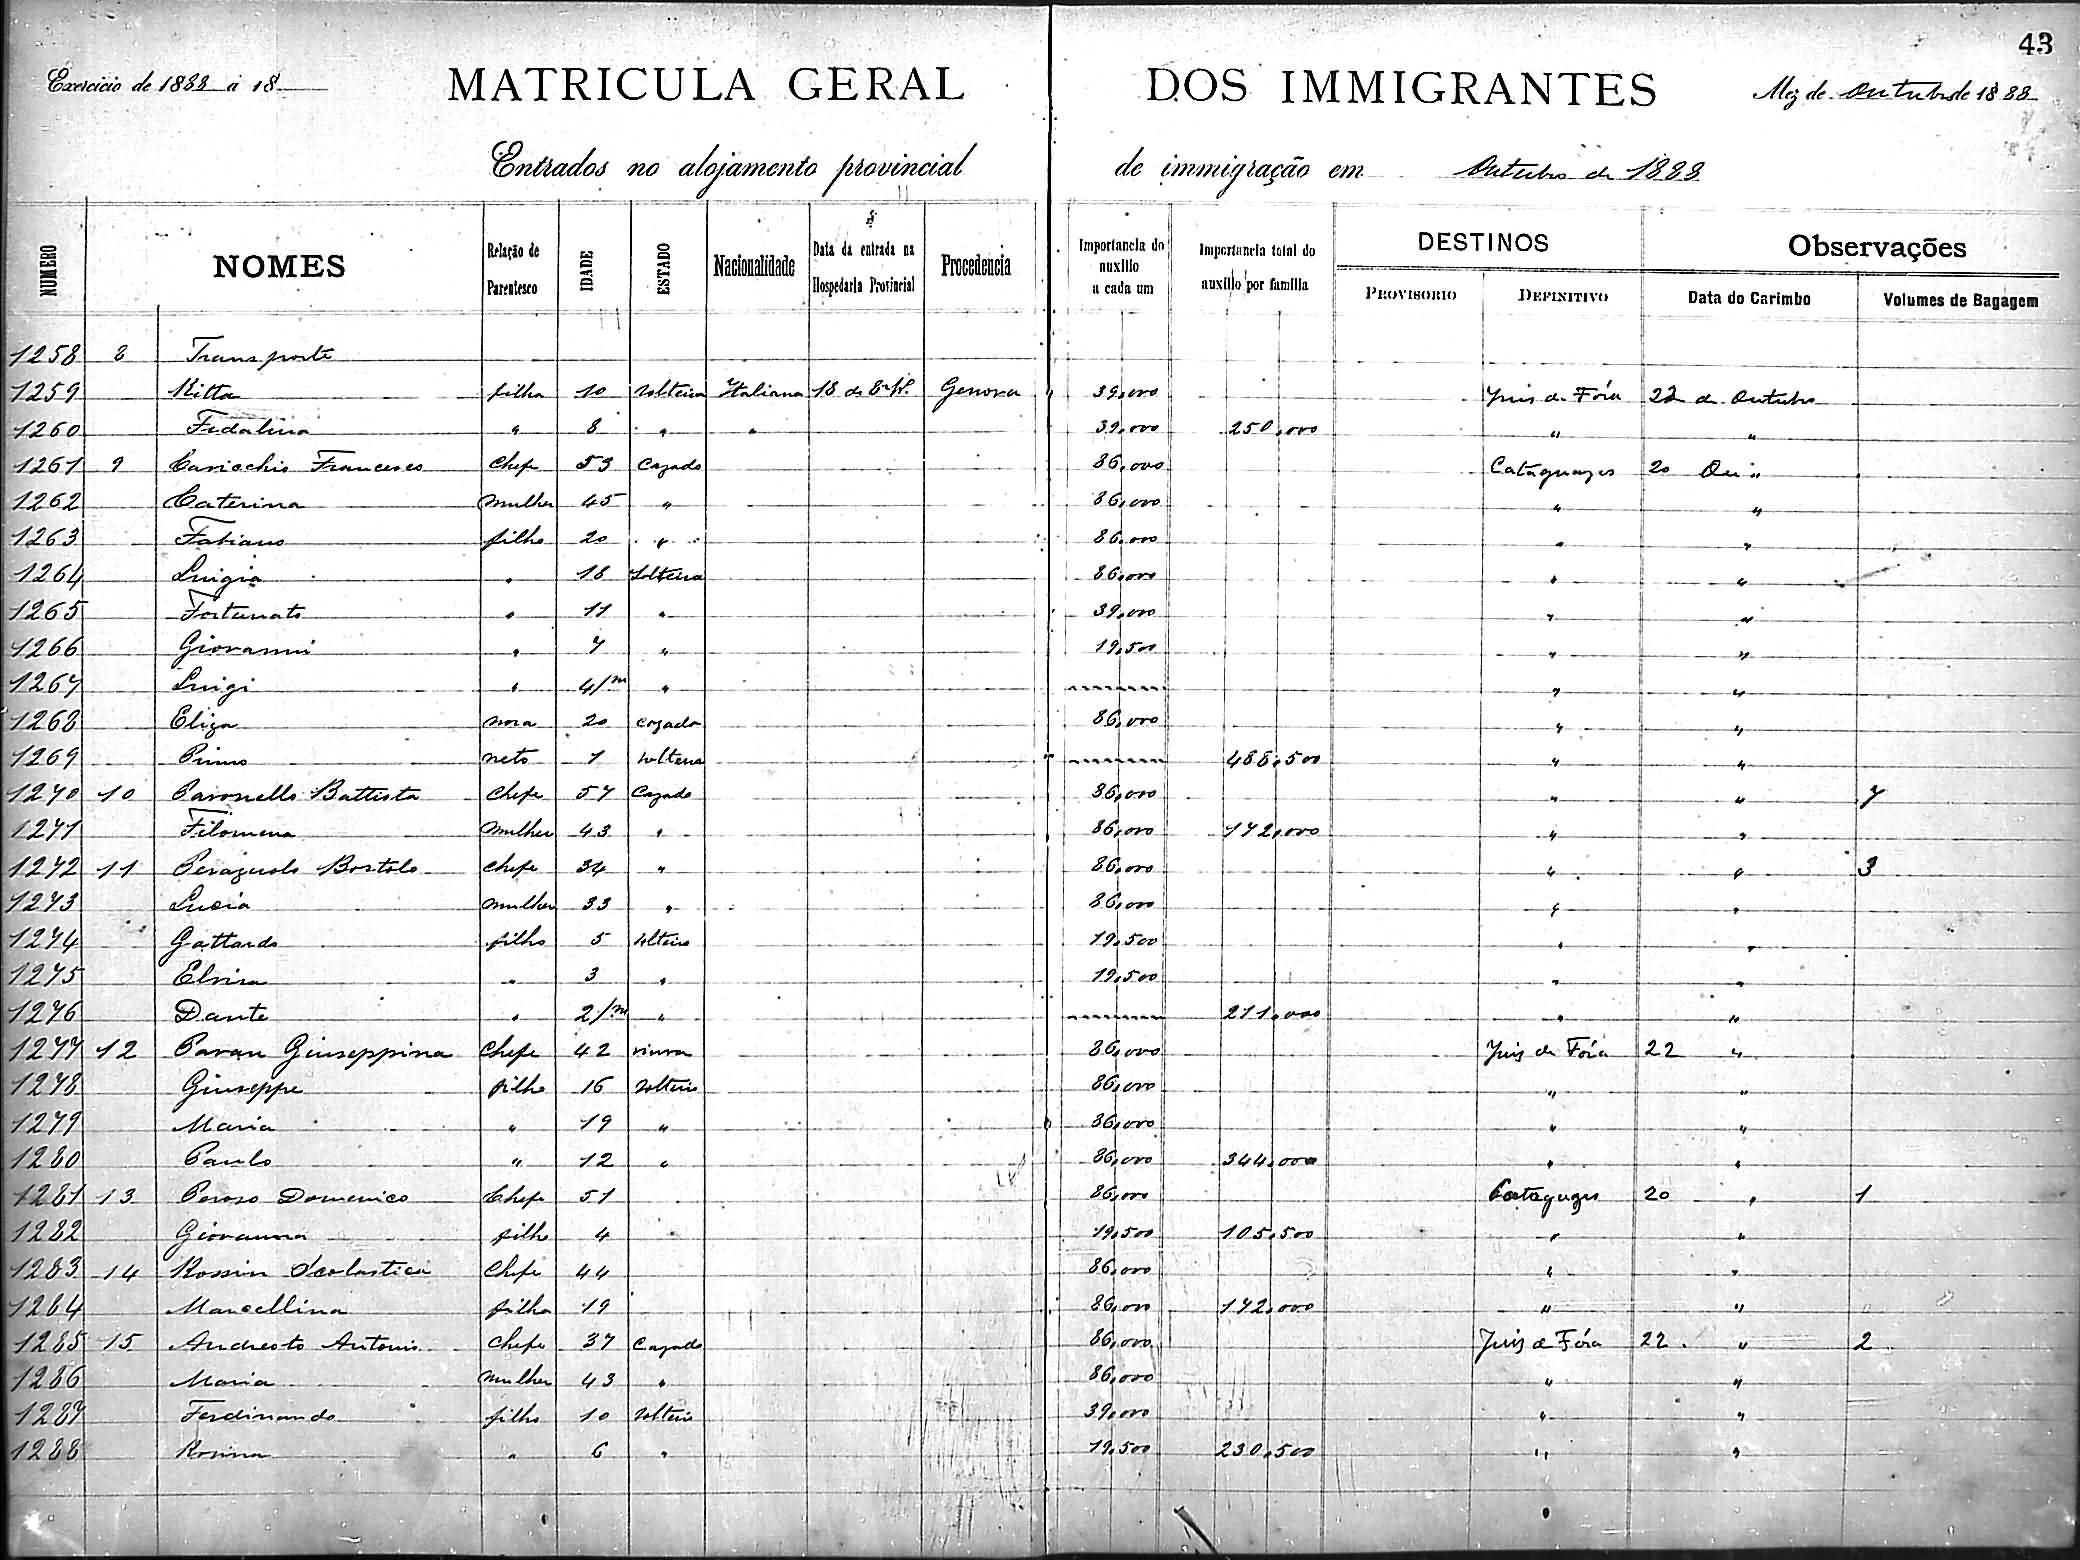 43
Exercicio de 1888 a 18
MATRICULA GERAL DOS IMMIGRANTES
Mez de Outubro de 1888
Entrados no alojamento provincial de immigração em Outubro de 1888
NUMERO NOMES Relação de Parentesco IDADE ESTADO Nacionalidade Data da entrada na Hospedaria Provincial Procedencia Importancia do auxilio a cada um Importancia total do auxilio por familia DESTINOS PROVISORIO DEFINITIVO Observações Data do Carimbo Volumes de Bagagem
1258 8 Transporte
1259 Ritta filha 10 solteira Italiana 18 de Genova 39,000 Juis de Fóra 22 de Outubro
1260 Fidalina " 8 " " 39,000 250,000 " "
1261 9 Francesco Chefe 53 Cazado 86,000 Cataguazes 20 "
1262 Caterina mulher 45 " 86,000 " "
1263 Fabiano filho 20 " 86,000 " "
1264 Luigia " 18 Solteira 86,000 " "
1265 Fortunato " 11 " 39,000 " "
1266 Giovanni " 7 " 19,500 " "
1267 Luigi " 4/m " " "
1268 Eliza nora 20 cazada 86,000 " "
1269 Primo neto 1 solteiro 488,500 " "
1270 10 Paronello Battista Chefe 57 Cazado 86,000 " " 7
1271 Filomena Mulher 43 " 86,000 172,000 " "
1272 11 Perazuolo Bortolo Chefe 34 " 86,000 " " 3
1273 Lucia mulher 33 " 86,000 " "
1274 Gottardo filho 5 solteiro 19,500 " "
1275 Elvira " 3 " 19,500 " "
1276 Dante " 2/m " 211,000 " "
1277 12 Pavan Giuseppina Chefe 42 viuva 86,000 Juis de Fóra 22 "
1278 Giuseppe filho 16 solteiro 86,000 " "
1279 Maria " 19 " 86,000 " "
1280 Paulo " 12 " 86,000 344,000 " "
1281 13 Peroso Domenico Chefe 51 86,000 20 " 1
1282 Giovanna filha 4 19,500 105,500 " "
1283 14 Rossin Scolastica Chefe 44 86,000 " "
1284 Marcellina filha 19 86,000 172,000 " "
1285 15 Andreoto Antonio Chefe 37 Cazado 86,000 Juis de Fóra 22 " 2
1286 Maria Mulher 43 " 86,000 " "
1287 Ferdinando filho 10 solteiro 39,000 " "
1288 Rosina " 6 " 19,500 230,500 " "